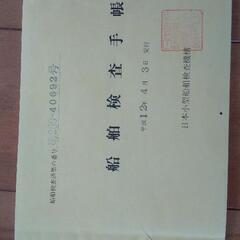 船舶検査済票の番号 40692号
船舶検査手帳
平成12年4月3日交付
日本小型船舶検査機構